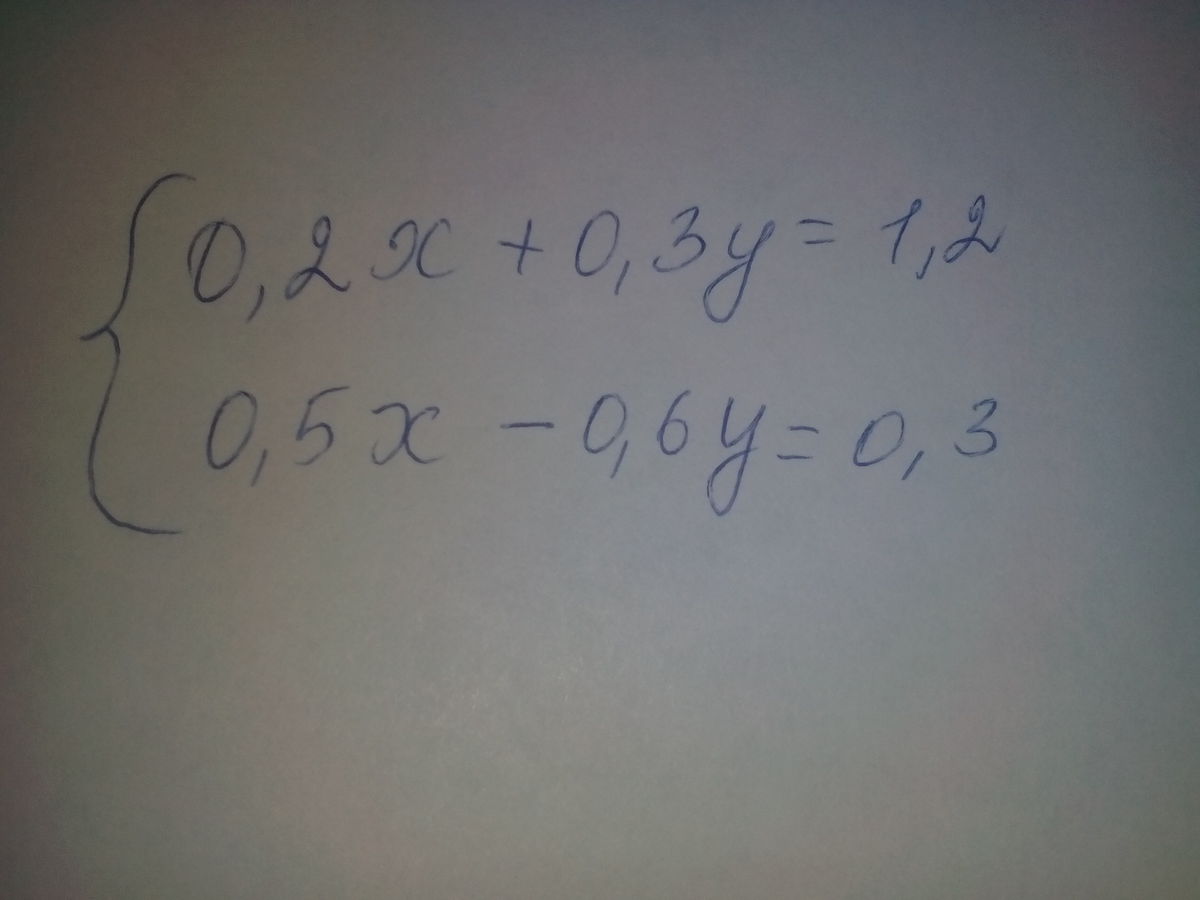 0,2x + 0,3y = 1,2
0,5x - 0,6y = 0,3